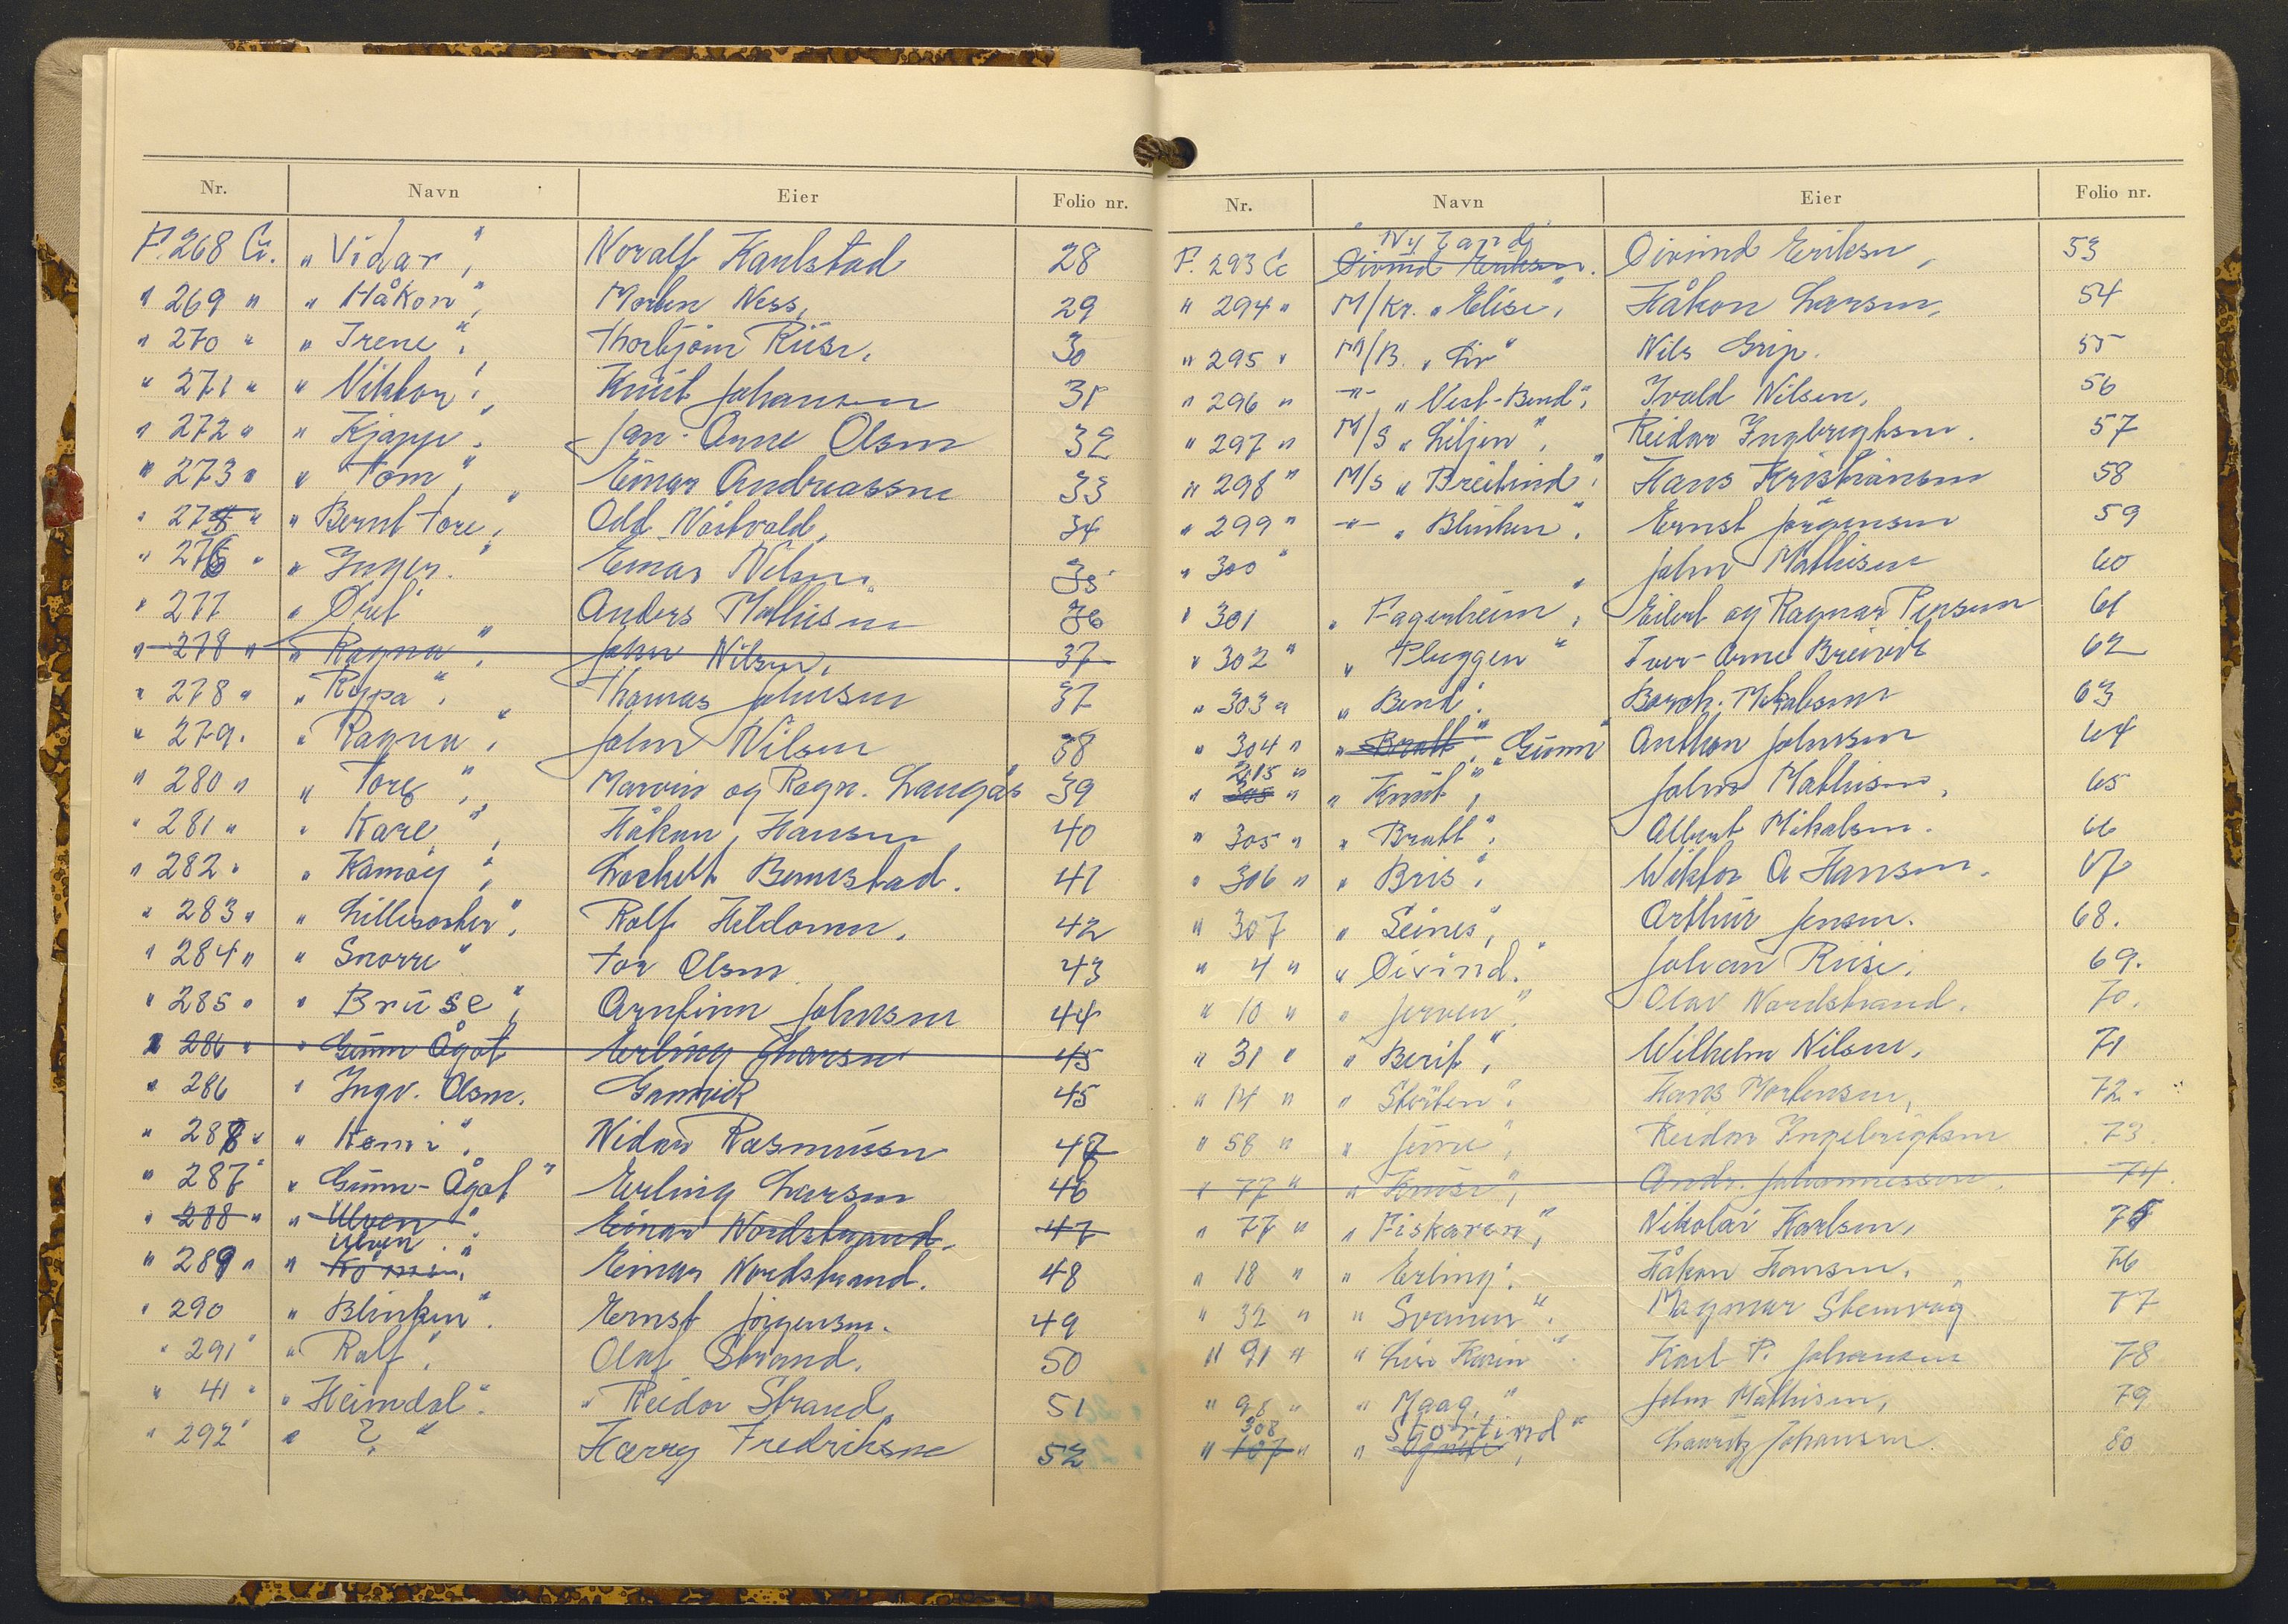 Nr. Navn Eier Folio nr.
F. 268 G. „Vidar", Noralf Karlstad 28
" 269 " „Håkon", Morten Ness, 29
" 270 " „Irene". Thorbjørn Riise, 30
" 271 " „Viktor", Knut Johansen 31
" 272 " „Kjapp". Jan-Arne Olsen 32
" 273 " „Tom", Einar Andreassen 33
" 274 " „Bernt Tore", Odd Nåstvold, 34
" 276 " „Inger." Einar Nilsen, 35
" 277 „Ørn" Anders Mathisen 36
" 278 " „Ragna", John Nilsen, 37
" 278 " „Rypa", Thomas Johnsen 37
" 279. „Ragna", John Nilsen 38
" 280 " „Tore", Marvin og Ragn. Laugås 39
" 281 " „Kåre", Håkon Hansen 40
" 282 " „Kamøy", Lockert Bennstad. 41
" 283 " „Lillesøster", Rolf Hildonen. 42
" 284 " „Snorre" Tor Olsen 43
" 285 " „Bruse", Arnfinn Johnsen 44
" 286 " „Gunn Ågot Erling Larsen 45
" 286 " Ingv. Olsen. Gamvik 45
" 288 " „Komi". Vidar Rasmussen 47
" 287 " „Gunn-Ågot" Erling Larsen 46
" 288 " „Ulven" Einar Nordstrand. 47
" 289 " „Ulven". Einar Nordstrand. 48
" 290 „Blinken". Ernst Jørgensen. 49
" 291 " „Ralf". Olaf Strand. 50
" 41 " „Heimdal". „Reidar Strand 51
" 292 " „ ? " Harry Fredriksen 52
Nr. Navn Eier Folio nr.
Nyland
F. 293 G Øivind Eriksen. Øivind Eriksen, 53
" 294 " M/Kr. „Elise", Håkon Larsen, 54
" 295 " M/B. „Liv" Nils Grip. 55
" 296 " -"- „Vest-Bend", Ivald Nilsen, 56
" 297 " M/S „Liljen", Reidar Ingebrigtsen. 57
" 298 " M/S „Breitind". Hans Kristiansen 58
" 299 " -"- „Blinken". Ernst Jørgensen 59
" 300 " John Mathisen 60
" 301 „Fagerheim", Eilert og Ragnar Persen 61
" 302 " „Pluggen" Iver-Arne Breivik 62
" 303 " „Bend". Borch. Mikalsen 63
" 304 " „Bratt". „Gunn" Anthon Johnsen 64
215 "
" 305 " „Knut", John Mathisen, 65
" 305 " „Bratt". Albert Mikalsen. 66
" 306 " „Bris", Wiktor A Hansen. 67
" 307 „Seines", Arthur Jensen. 68.
" 4 " „Øivind." Johan Riise. 69.
" 10 " „Jerven". Olav Nordstrand. 70.
" 31 " „Berit", Wilhelm Nilsen, 71
" 14 " Hans Mortensen, 72.
" 58 " Reidar Ingebrigtsen 73.
" 77 " Andr. Johannessen. 74.
" 77 " „Fiskaren", Nikolai Karlsen, 75
" 18 " „Erling". Håkon Hansen. 76
" 32 " „Svanen". Magnar Stenvåg 77
" 91 " „Liss Karin". Karl P. Johansen 78
" 98 " „Maag," John Mathisen, 79
308 Stortind"
" 107 " Lauritz Johansen. 80